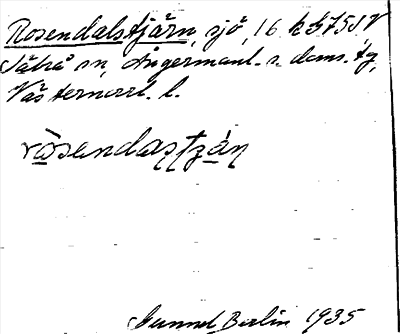 Rosendalstjärn, sjö, 16
Såtrå sn, Ångermanl. s. doms. tg,
Västernorrl. l.
rosendastján
Gunnel Berlin 1935